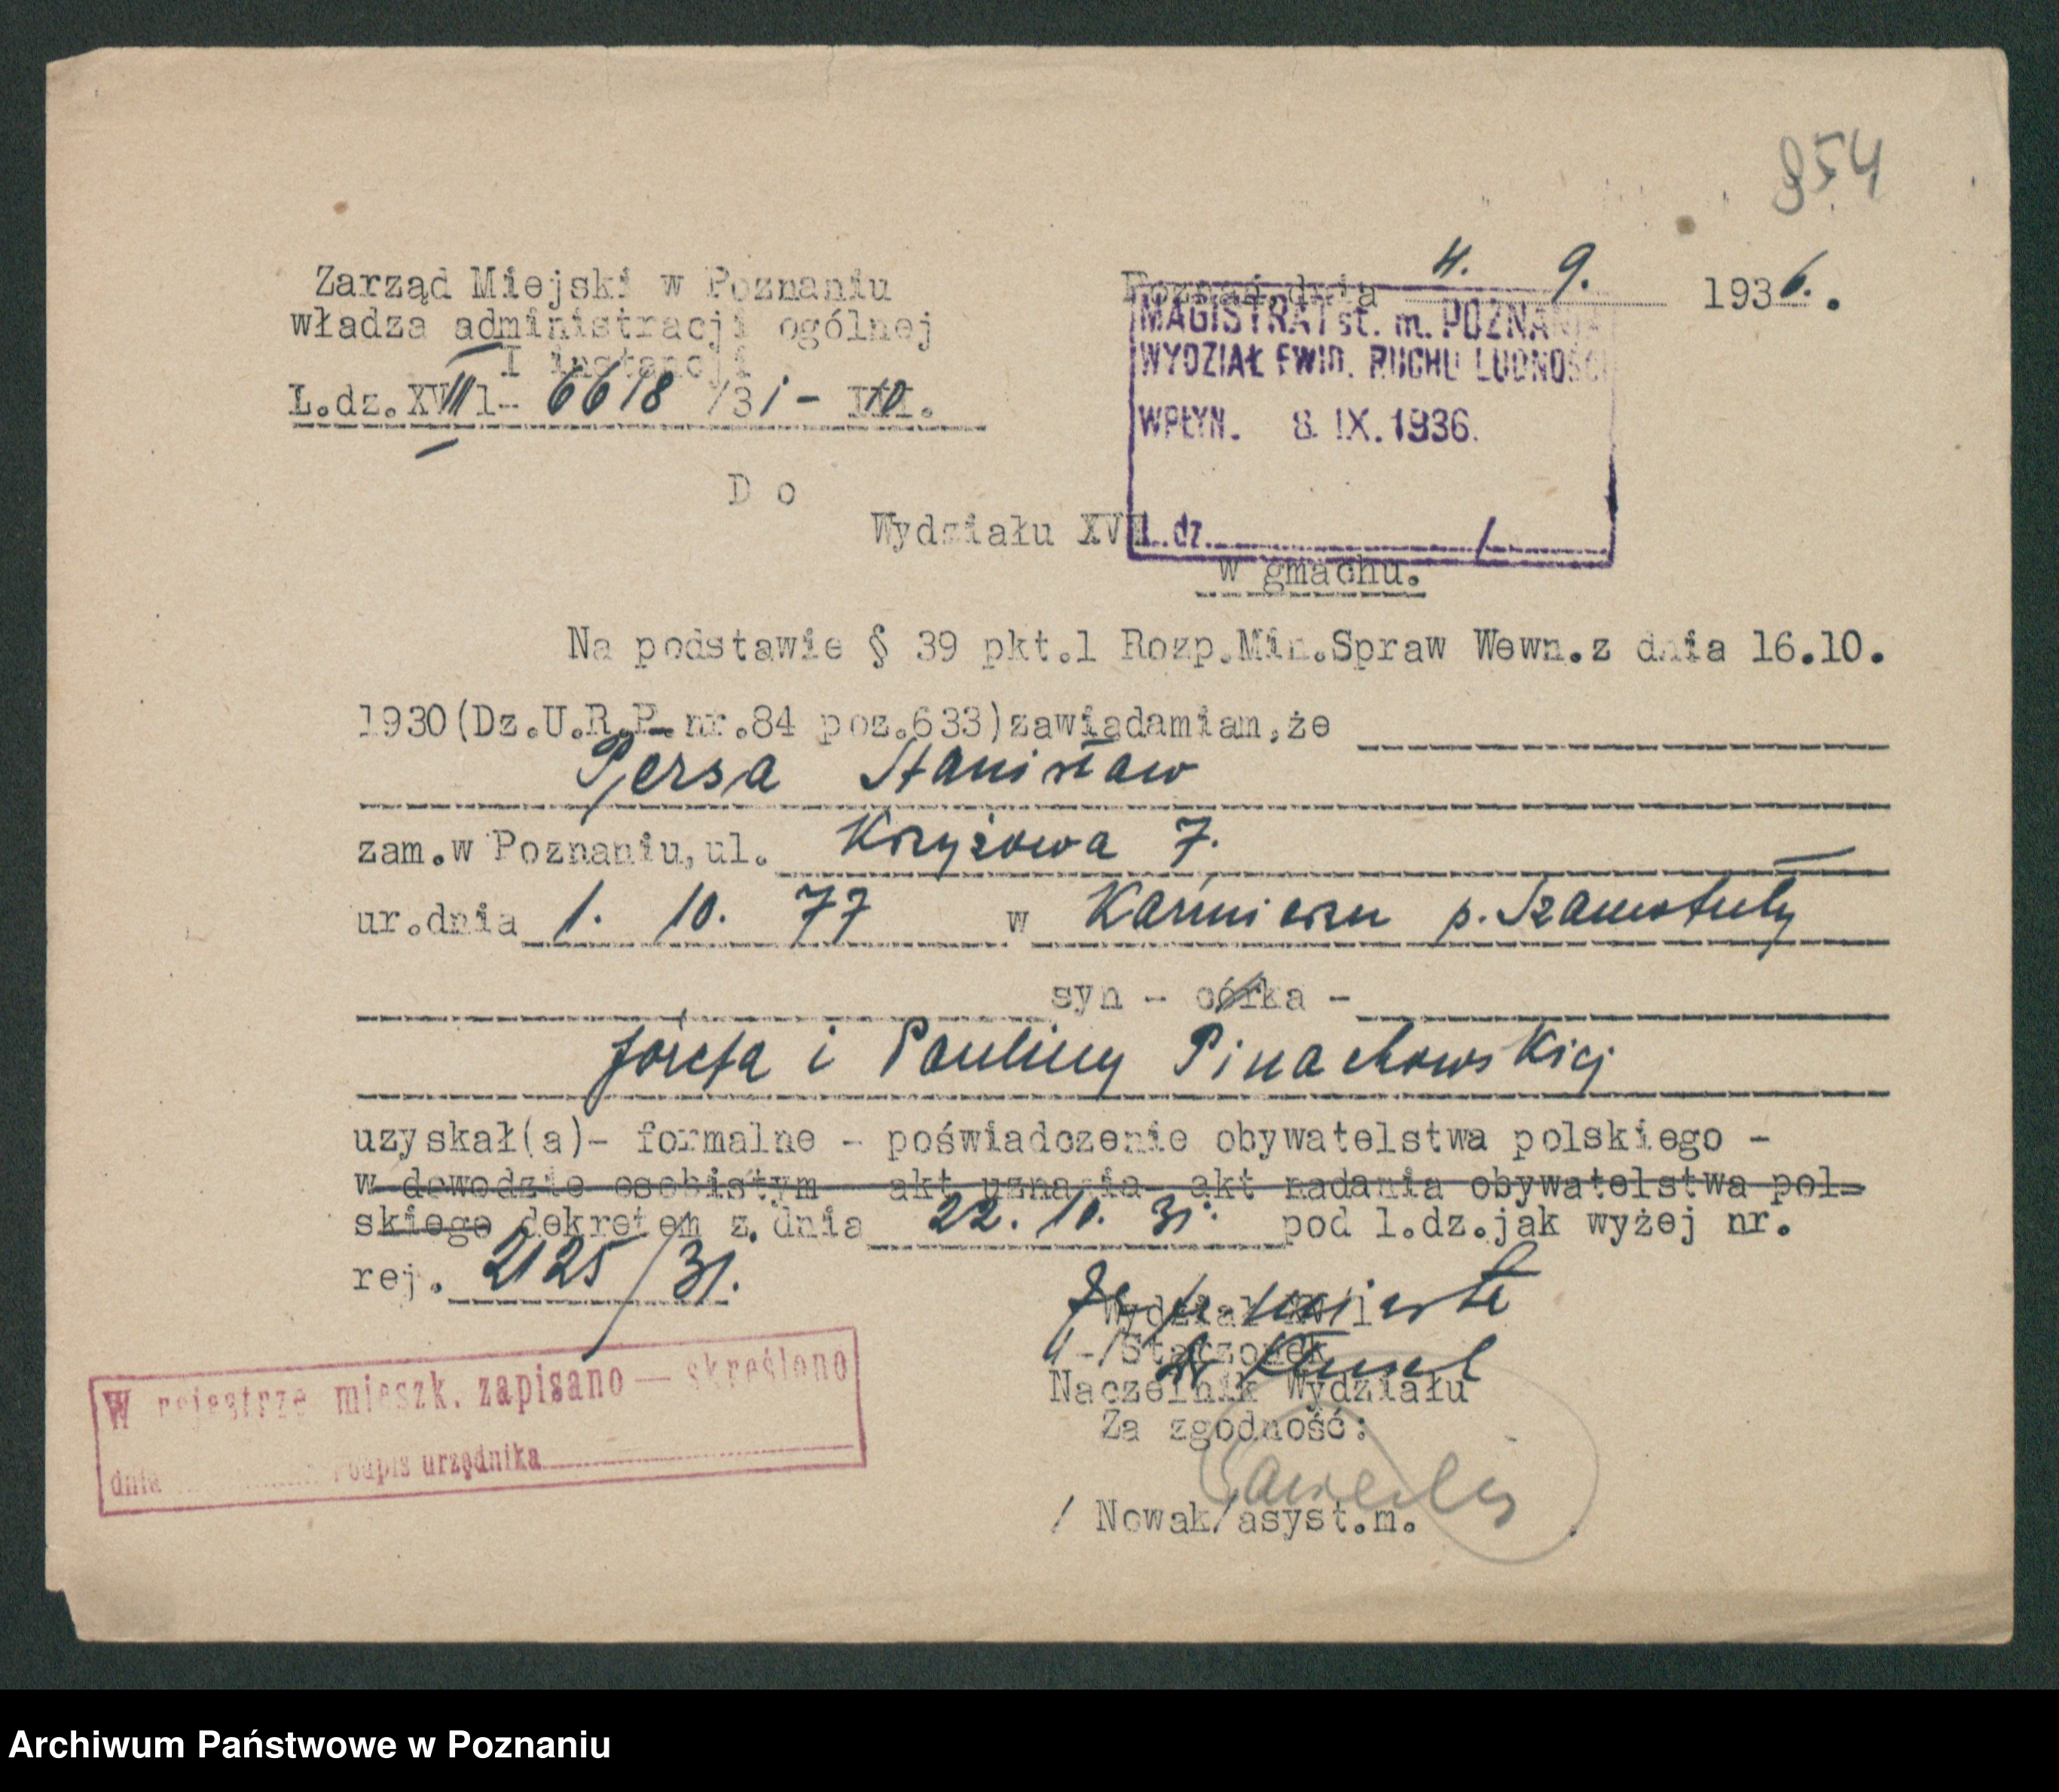 854
Zarząd Miejski w Poznaniu
władza administracji ogólnej
I instancji
L.dz.XVIII- 6618 /31 - 10.
Poznań, dnia 4. 9. 1936.
MAGISTRAT st. m. POZNANIA
WYDZIAŁ EWID. RUCHU LUDNOŚCI
WPŁYN. 8. IX. 1936.
L. dz. /
D o
Wydziału XVI
w gmachu.
Na podstawie § 39 pkt.1 Rozp.Min.Spraw Wewn.z dnia 16.10.
1930(Dz.U.R.P. nr.84 poz.633)zawiadamiam,że
Persa Stanisław
zam.w Poznaniu,ul. Krzyżowa 7.
ur.dnia 1. 10. 77 w Kaźmierzu p. Szamotuły
syn - córka -
Józefa i Pauliny Pinachowskiej
uzyskał(a)- formalne - poświadczenie obywatelstwa polskiego -
w dowodzie osobistym - akt uznania- akt nadania obywatelstwa pol=
skiego dekretem z dnia 22. 10. 31. pod l.dz.jak wyżej nr.
rej. 2125/31.
Wydział
/-/Stączonek
Naczelnik Wydziału
Za zgodność:
/ Nowak/asyst.m.
W rejestrze mieszk. zapisano — skreślono
dnia podpis urzędnika
Archiwum Państwowe w Poznaniu